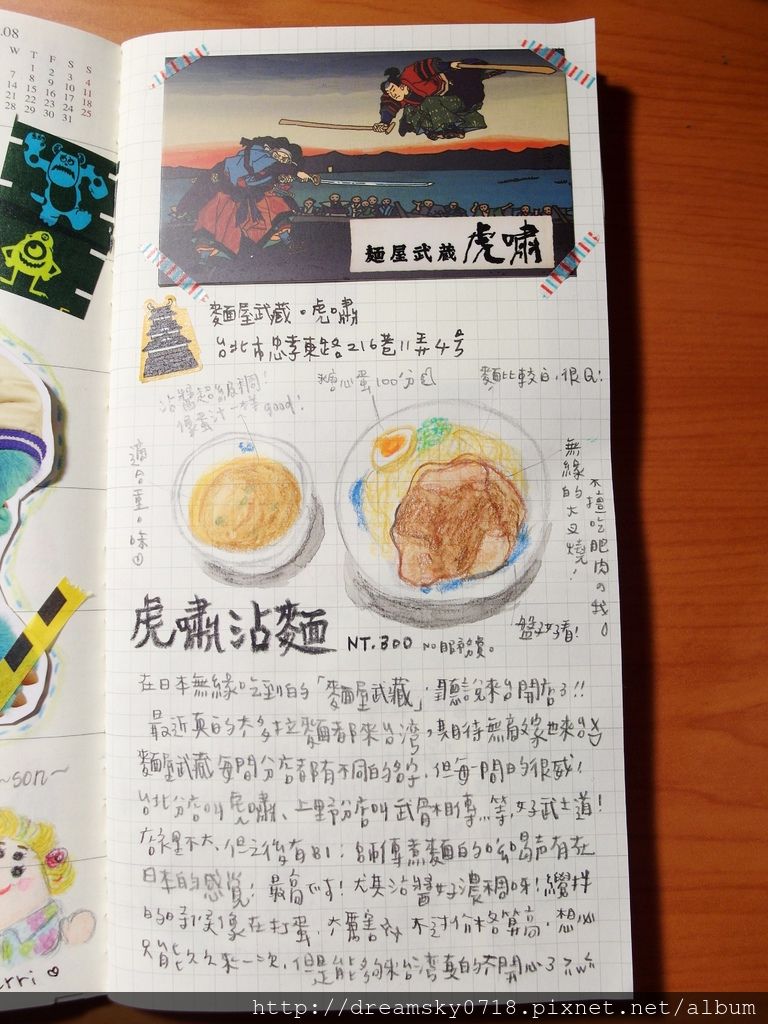 .08
W T F S S
1 2 3 4
7 8 9 10 11
14 15 16 17 18
21 22 23 24 25
28 29 30 31
麵屋武蔵 虎嘯
麵屋武蔵。虎嘯
台北市忠孝東路216巷11弄4号
沾醬超級稠!
像蛋汁一樣good!
糖心蛋100分
麵比較白,很Q!
適合重口味
無緣的大叉燒!
不擅吃肥肉の我
盤好看!
虎嘯沾麵 NT.300 No服務費。
在日本無緣吃到的「麵屋武藏」聽說來台開店了!!
最近真的太多拉麵都來台灣,期待無敵家也來
麵屋武蔵每間分店都有不同的名字,但每一間的很威!
台北分店叫虎嘯、上野分店叫武骨相傳..等,好武士道!
店裡不大,但之後有B1;師傅煮麵的吆喝声有在
日本的感覺!最高です!尤其沾醬好濃稠呀!攪拌
的時候像在打蛋,太厲害 不過价格算高,想必
只能久久來一次,但是能夠來台灣真的太開心了
~son~
erri
http://dreamsky0718.pixnet.net/album